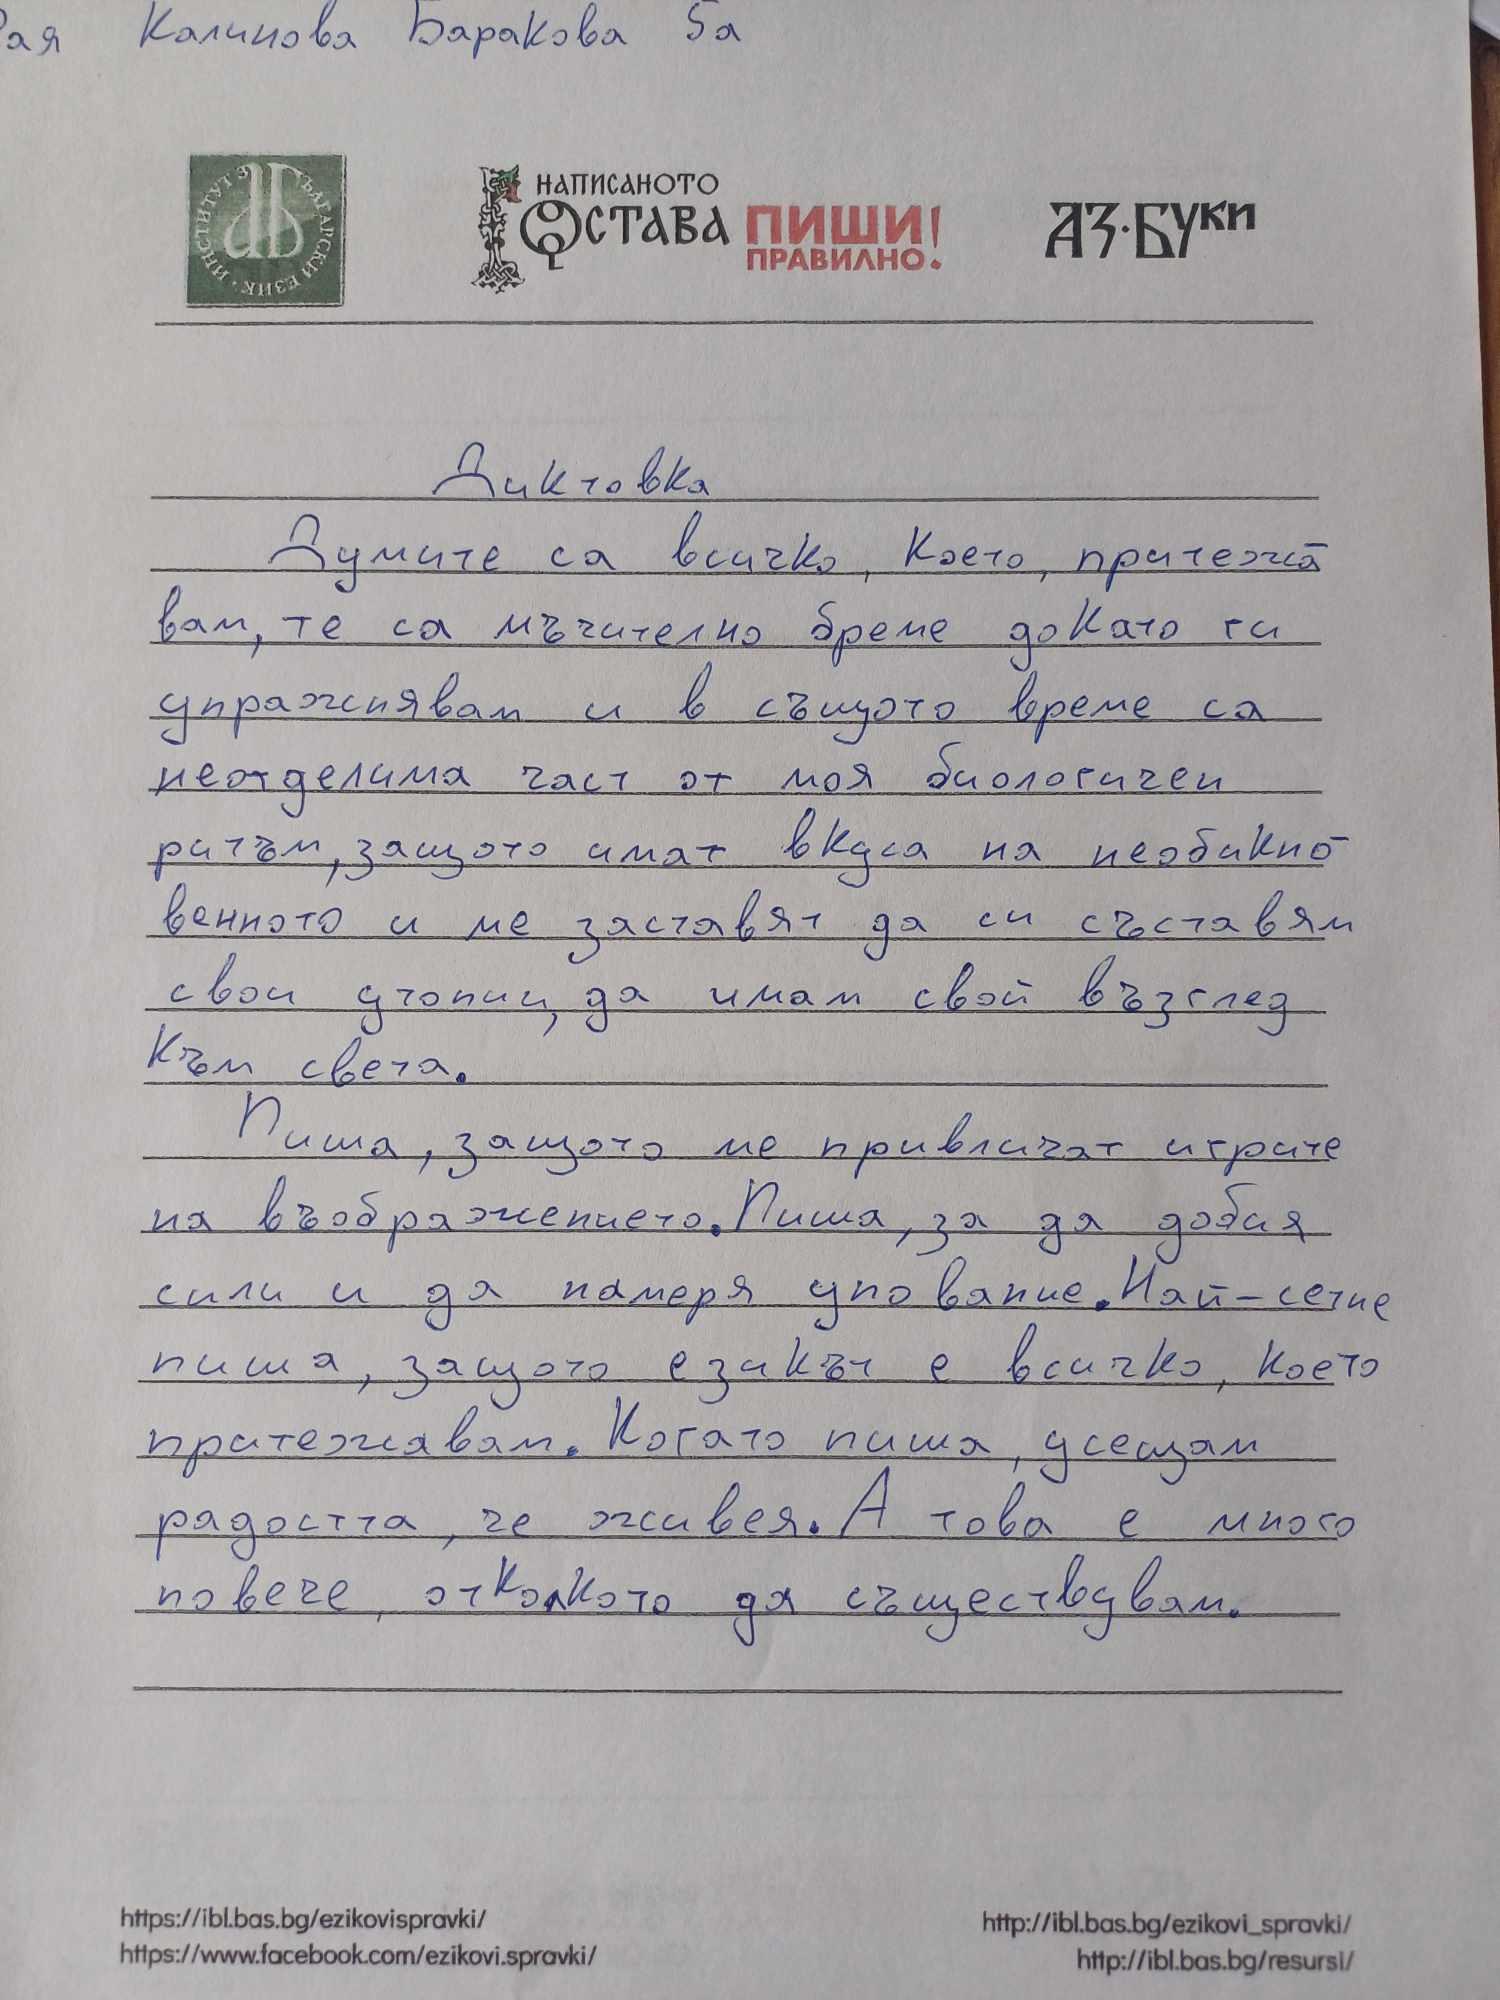 Рая Калинова Баракова 5а
ИНСТИТУТ ЗА БЪЛГАРСКИ ЕЗИК
НАПИСАНОТО
ОСТАВА ПИШИ
ПРАВИЛНО!
АЗ·БУКИ
Диктовка
Думите са всичко, което, притежа
вам, те са мъчително бреме докато ги
упражнявам и в същото време са
неотделима част от моя биологичен
ритъм, защото имат вкуса на необикно
венното и ме заставят да си съставям
свои утопии, да имам свой възглед
към света.
Пиша, защото ме привличат игрите
на въображението. Пиша, за да добия
сили и да намеря упование. Най-сетне
пиша, защото езикът е всичко, което
притежавам. Когато пиша, усещам
радостта, че живея. А това е много
повече, отколкото да съществувам.
https://ibl.bas.bg/ezikovispravki/ http://ibl.bas.bg/ezikovi_spravki/
https://www.facebook.com/ezikovi.spravki/ http://ibl.bas.bg/resursi/